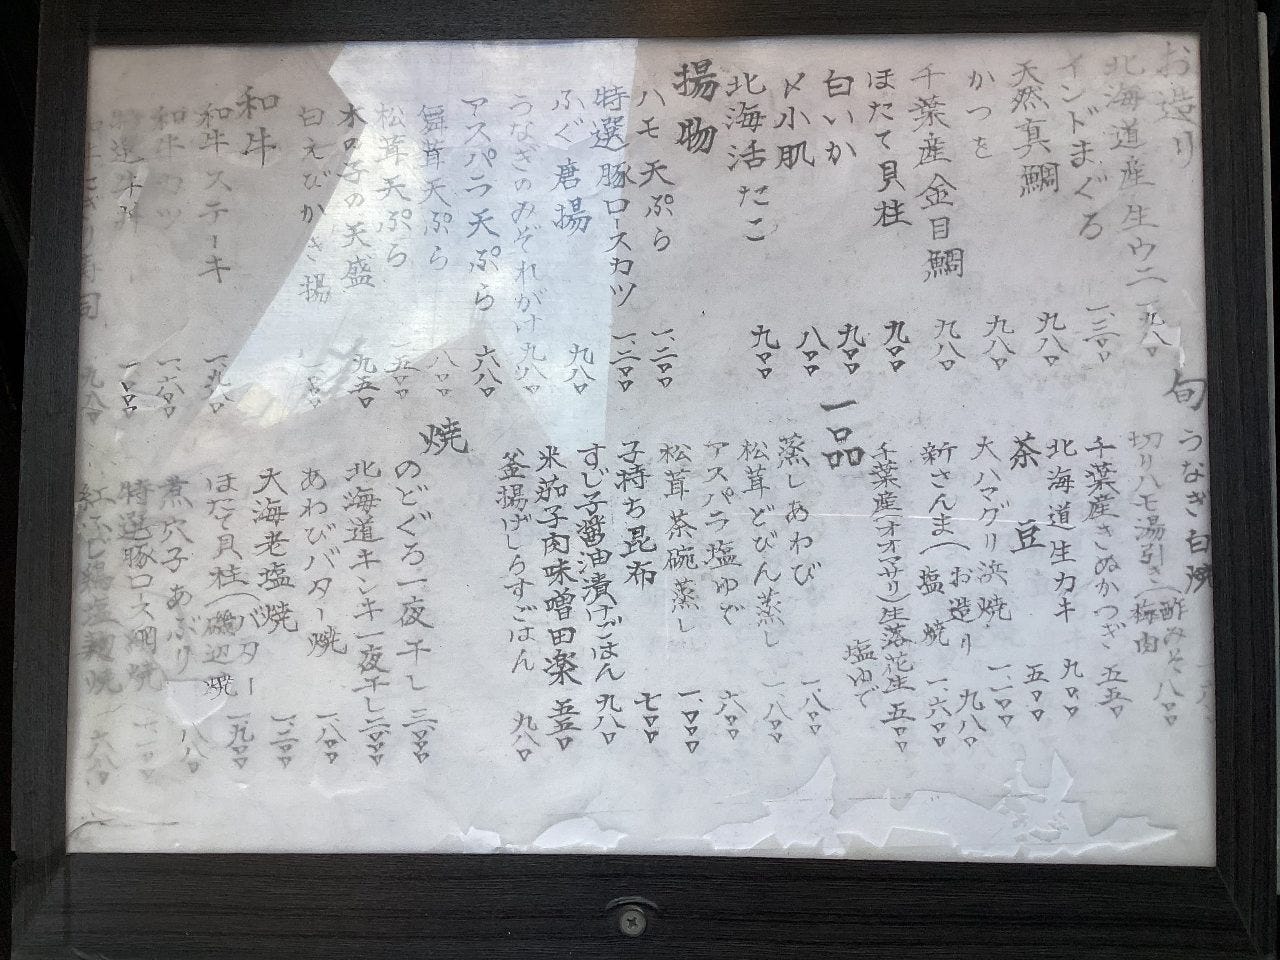 お造り
北海道産生ウニ 一、九八〇
インドまぐろ 一、三〇〇
天然真鯛 九八〇
かつを 九八〇
千葉産金目鯛 九八〇
ほたて貝柱 九〇〇
白いか 九〇〇
〆小肌 八〇〇
北海活たこ 九〇〇
揚物
ハモ天ぷら 一、二〇〇
特選豚ロースカツ 一、二〇〇
ふぐ唐揚 九八〇
うなぎのみぞれがけ 九八〇
アスパラ天ぷら 六八〇
舞茸天ぷら 八〇〇
松茸天ぷら 一、五〇〇
木の子の天盛 九五〇
白えびかき揚
和牛
和牛ステーキ 一、九八〇
和牛カツ 一、六〇〇
牛丼 一、〇〇〇
にぎり寿司 九八〇
旬
うなぎ白焼
切りハモ湯引き(酢みそ 梅肉 八〇〇
千葉産きぬかつぎ 五五〇
北海道生カキ 九〇〇
茶豆 五〇〇
大ハマグリ浜焼 一、二〇〇
新さんま(お造り 九八〇
塩焼 一、六〇〇
千葉産(オオマサリ)生落花生 塩ゆで 五〇〇
一品
蒸しあわび 一、八〇〇
松茸どびん蒸し 一、八〇〇
アスパラ塩ゆで 六〇〇
松茸茶碗蒸し 一、〇〇〇
子持ち昆布 七〇〇
すじ子醤油漬けごはん 九八〇
米茄子肉味噌田楽 五五〇
釜揚げしらすごはん 九八〇
焼
のどぐろ一夜干し 三、〇〇〇
北海道キンキ一夜干し 二、〇〇〇
あわびバター焼 一、八〇〇
大海老塩焼 一、三〇〇
ほたて貝柱(バター 磯辺焼 一、九〇〇
煮穴子あぶり 一、八〇〇
特選豚ロース網焼 一、二〇〇
紅ふじ鶏塩麹焼 一、六八〇